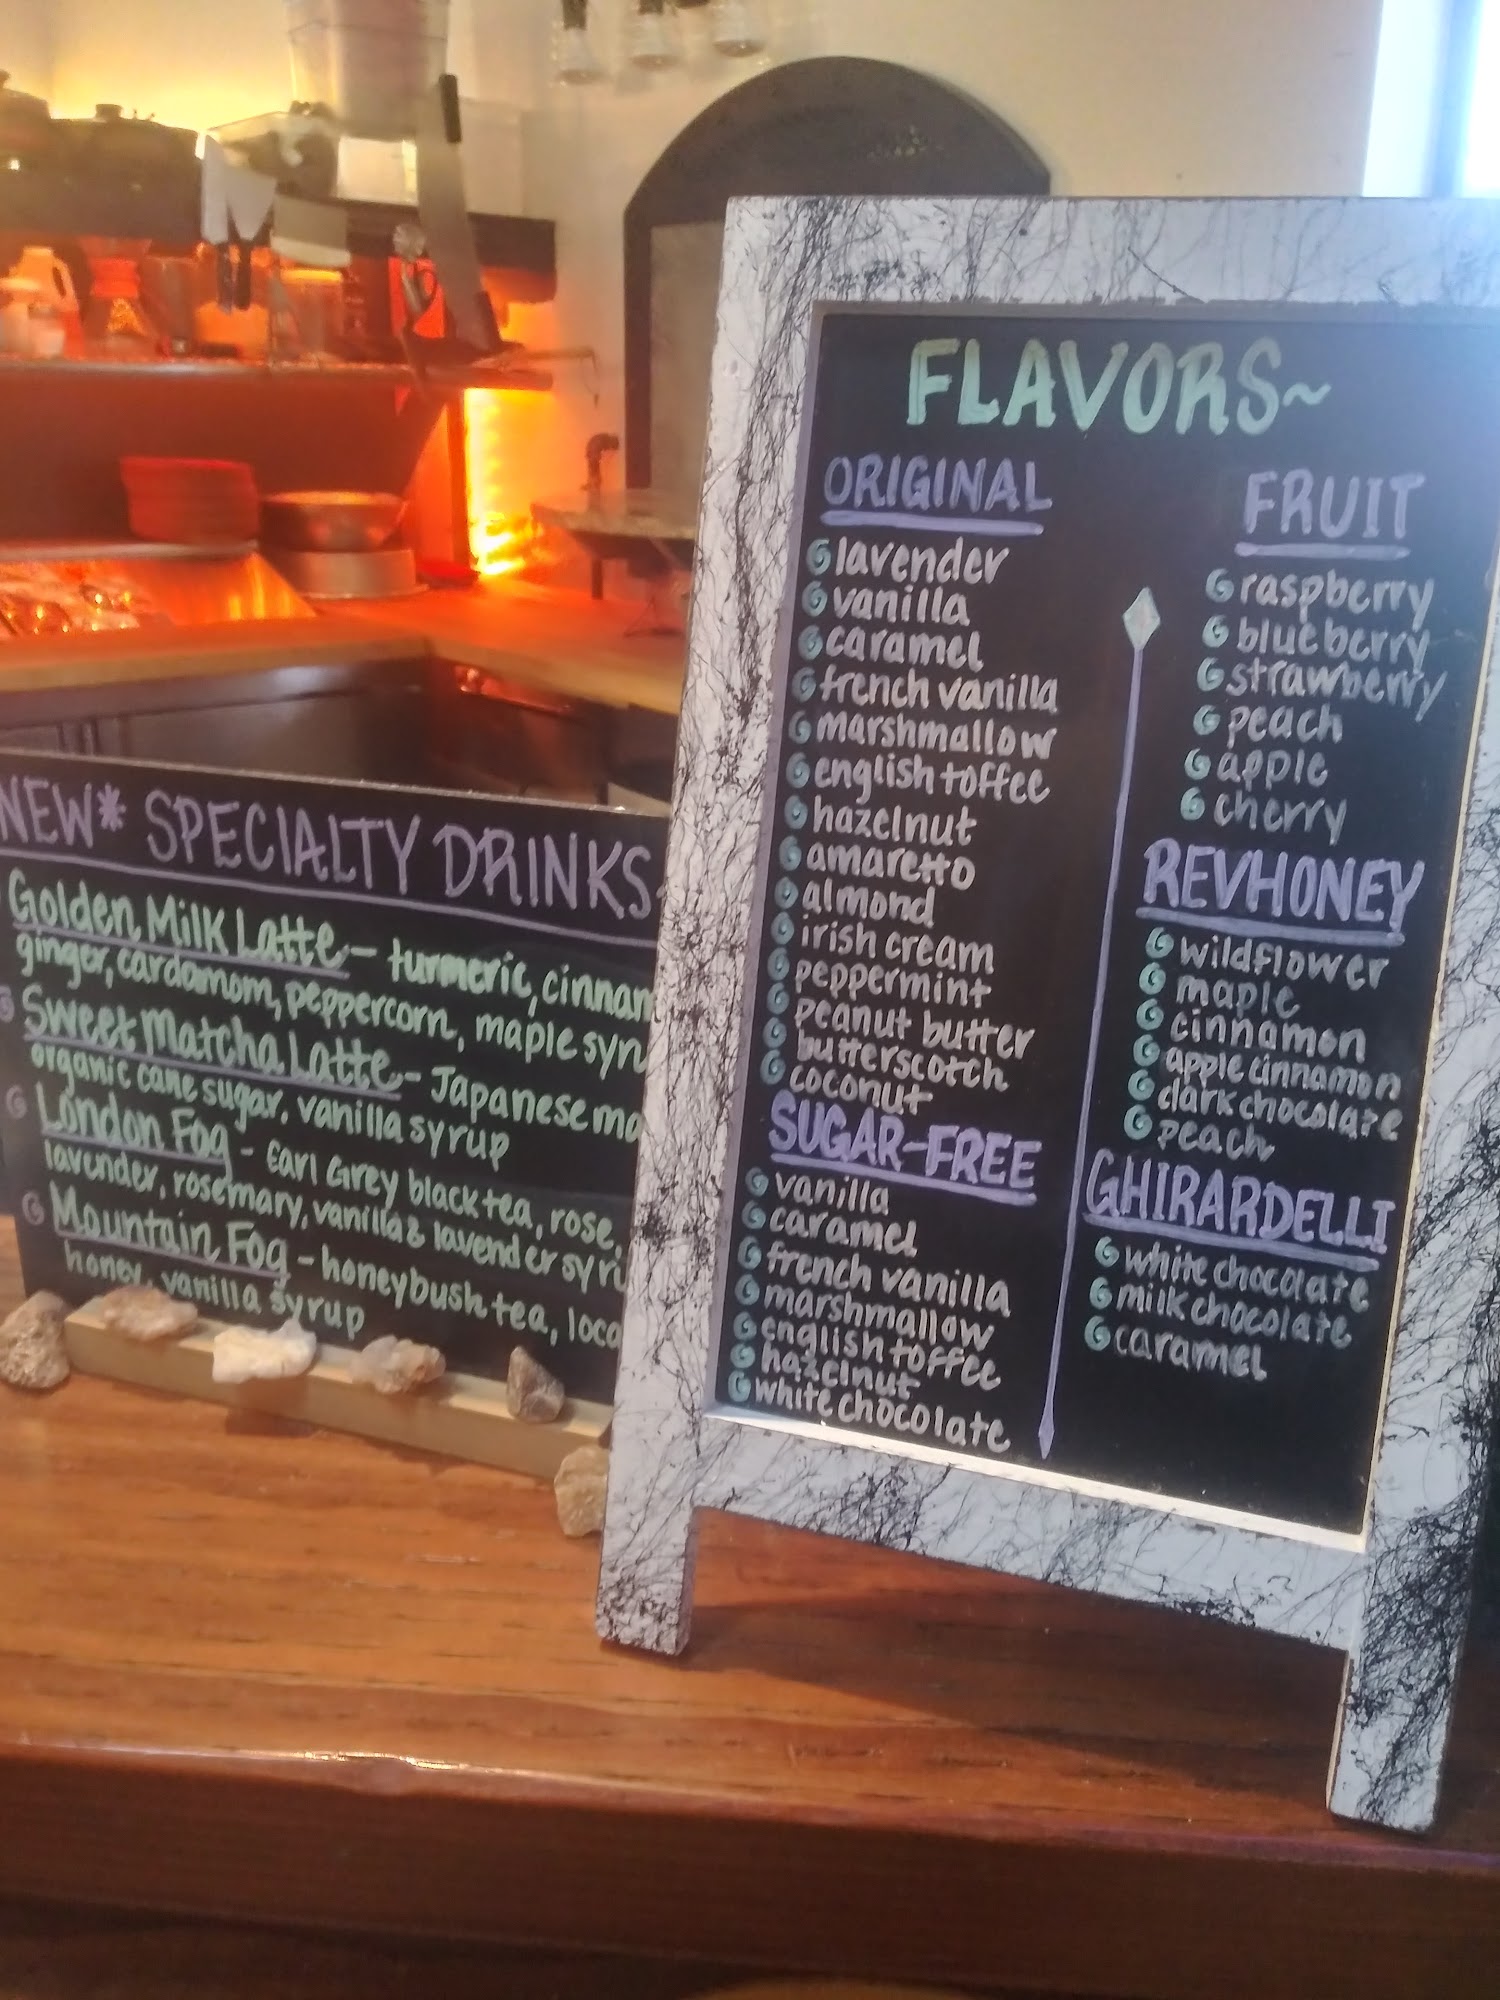 NEW* SPECIALTY DRINKS
Golden Milk Latte - turmeric, cinnam
ginger, cardamom, peppercorn, maple syr
Sweet Matcha Latte - Japanese ma
organic cane sugar, vanilla syrup
London Fog - Earl Grey black tea, rose,
lavender, rosemary, vanilla & lavender syru
Mountain Fog - honeybush tea, loca
honey, vanilla syrup
FLAVORS~
ORIGINAL
lavender
vanilla
caramel
french vanilla
marshmallow
english toffee
hazelnut
amaretto
almond
irish cream
peppermint
peanut butter
butterscotch
coconut
SUGAR-FREE
vanilla
caramel
french vanilla
marshmallow
english toffee
hazelnut
white chocolate
FRUIT
raspberry
blueberry
strawberry
peach
apple
cherry
REVHONEY
wildflower
maple
cinnamon
apple cinnamon
dark chocolate
peach
GHIRARDELLI
white chocolate
milk chocolate
caramel